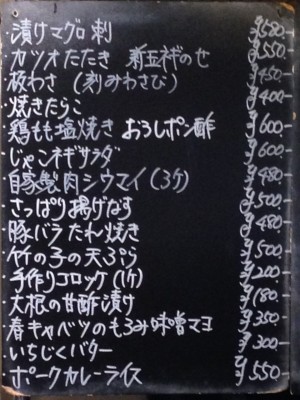 漬けマグロ刺 ¥580
カツオたたき 新玉ねぎのせ ¥550
板わさ (刻みわさび) ¥450
焼きたらこ ¥400
鶏もも塩焼き おろしポン酢 ¥600
じゃこネギサラダ ¥600
自家製肉シウマイ(3ケ) ¥480
さっぱり揚げなす ¥500
豚バラたれ焼き ¥480
竹の子の天ぷら ¥500
手作りコロッケ(1ケ) ¥200
大根の甘酢漬け ¥180
春キャベツのもろみ味噌マヨ ¥350
いちじくバター ¥300
ポークカレーライス ¥550